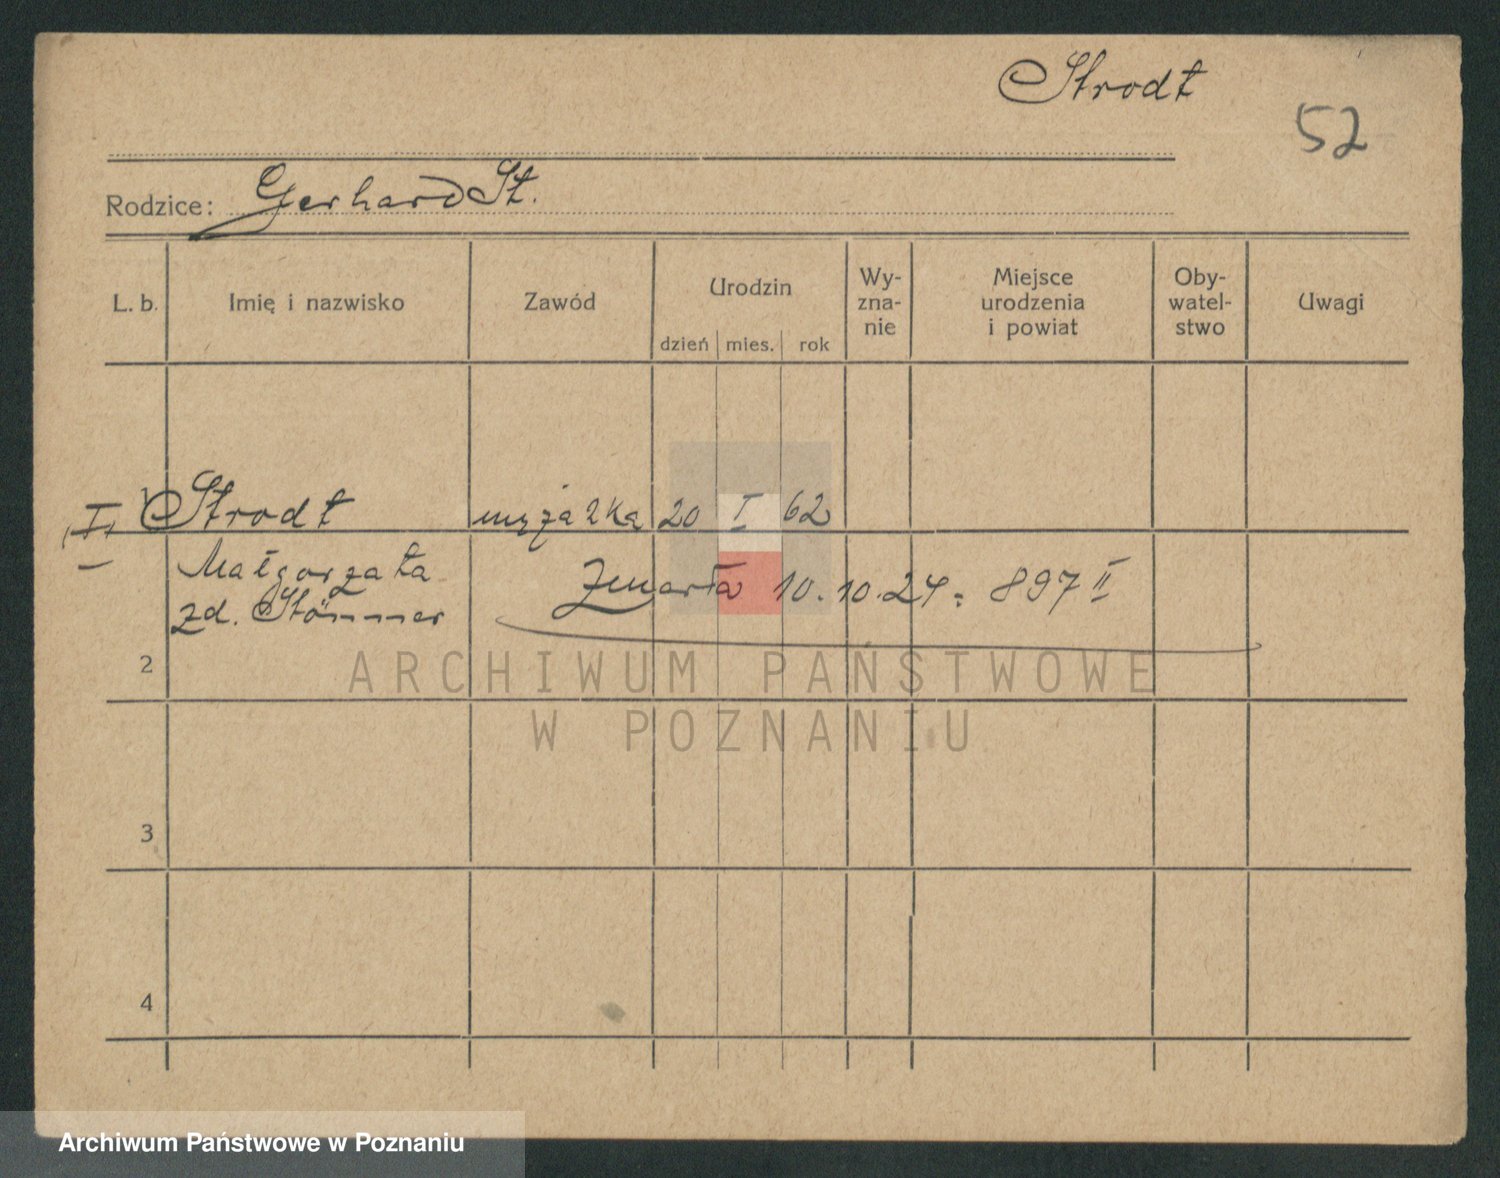 Strodt
52
Rodzice: Gerhard St.
L. b. Imię i nazwisko Zawód Urodzin dzień mies. rok Wy-zna-nie Miejsce urodzenia i powiat Oby-watel-stwo Uwagi
1 Strodt mężatka 20 I 62
I
Małgorzata
zd. Stömmer
Zmarła 10.10.24. 897 II
2
ARCHIWUM PAŃSTWOWE
W POZNANIU
3
4
Archiwum Państwowe w Poznaniu